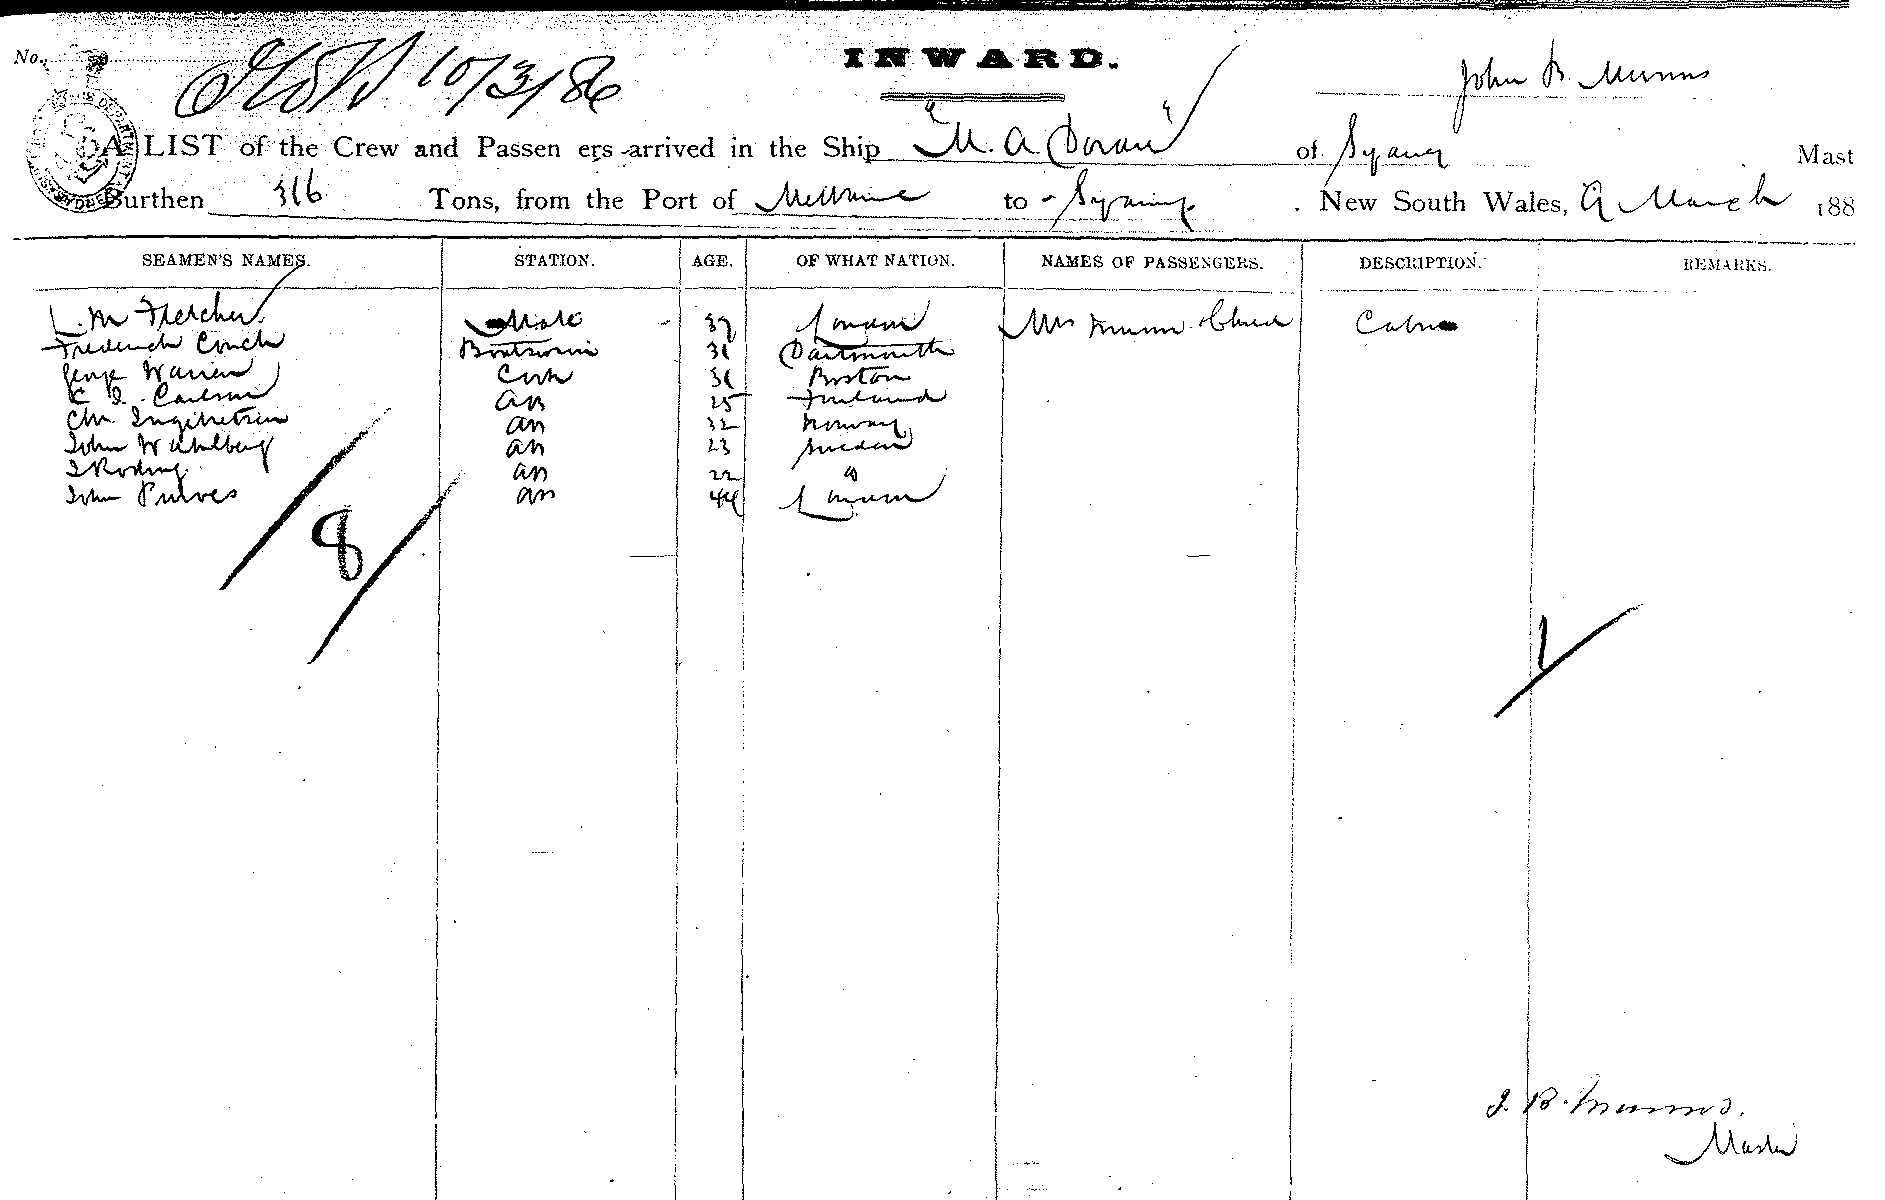 No.
10/3/86
INWARD.
John B. Munns
A LIST of the Crew and Passen ers arrived in the Ship "M. A. Doran" of Sydney Mast
Burthen 316 Tons, from the Port of Melbourne to Sydney New South Wales, 9 March 188
SEAMEN'S NAMES. STATION. AGE. OF WHAT NATION. NAMES OF PASSENGERS. DESCRIPTION. REMARKS.
L. M Fletcher Mate 37 London Mrs Munn Child Cabin
Frederick Couch Boatswain 31 Dartmouth
George Warren Cook 31 Boston
Carlson AB 25 Finland
Chr. Ingibretsen AB 32 Norway
John Wahlberg AB 23 Sweden
AB 22 "
John Purves AB 44 London
8
1
J. B. Munns.
Master